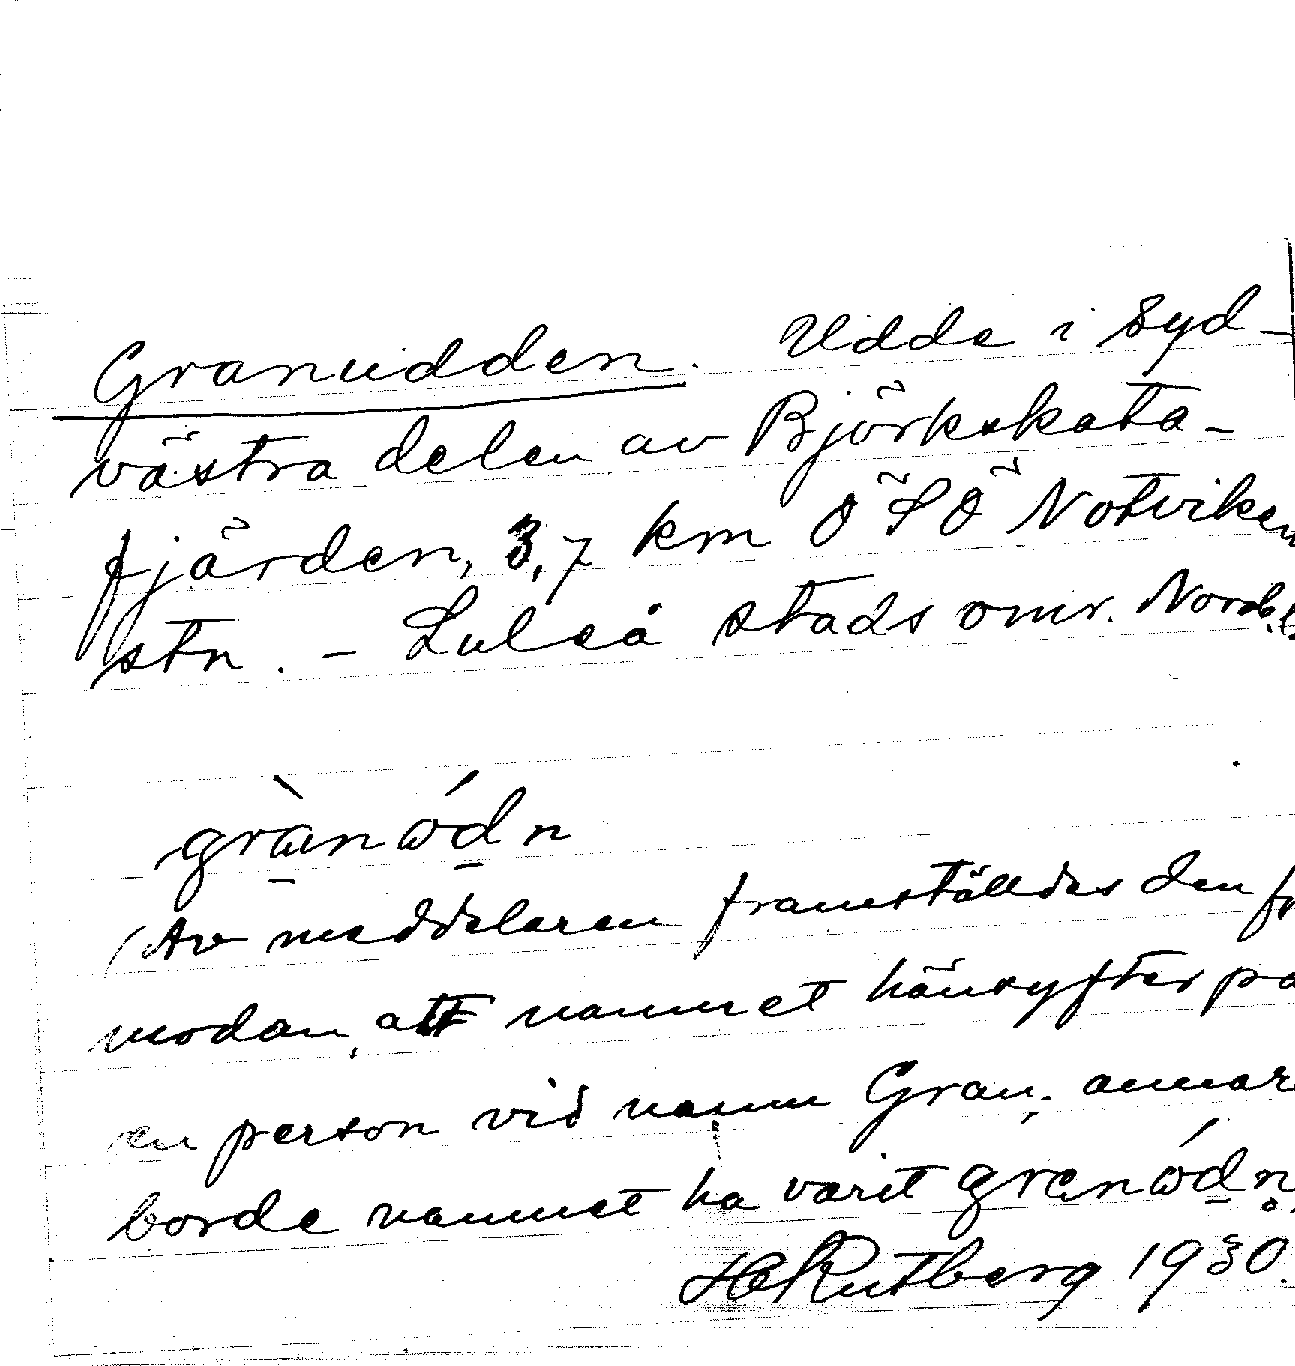 Granudden. Udde i Syd-
västra delen av Björkskata-
fjärden, 3,7 km ÖSÖ Notviken
stn. - Luleå stads omr. Nordb.l.
grànǻdn
(Av meddelaren framställdes den fr
modan, att namnet hänsyftar på
en person vid namn Gran; annar
borde namnet ha varit granǻdn.
HRutberg 1930.